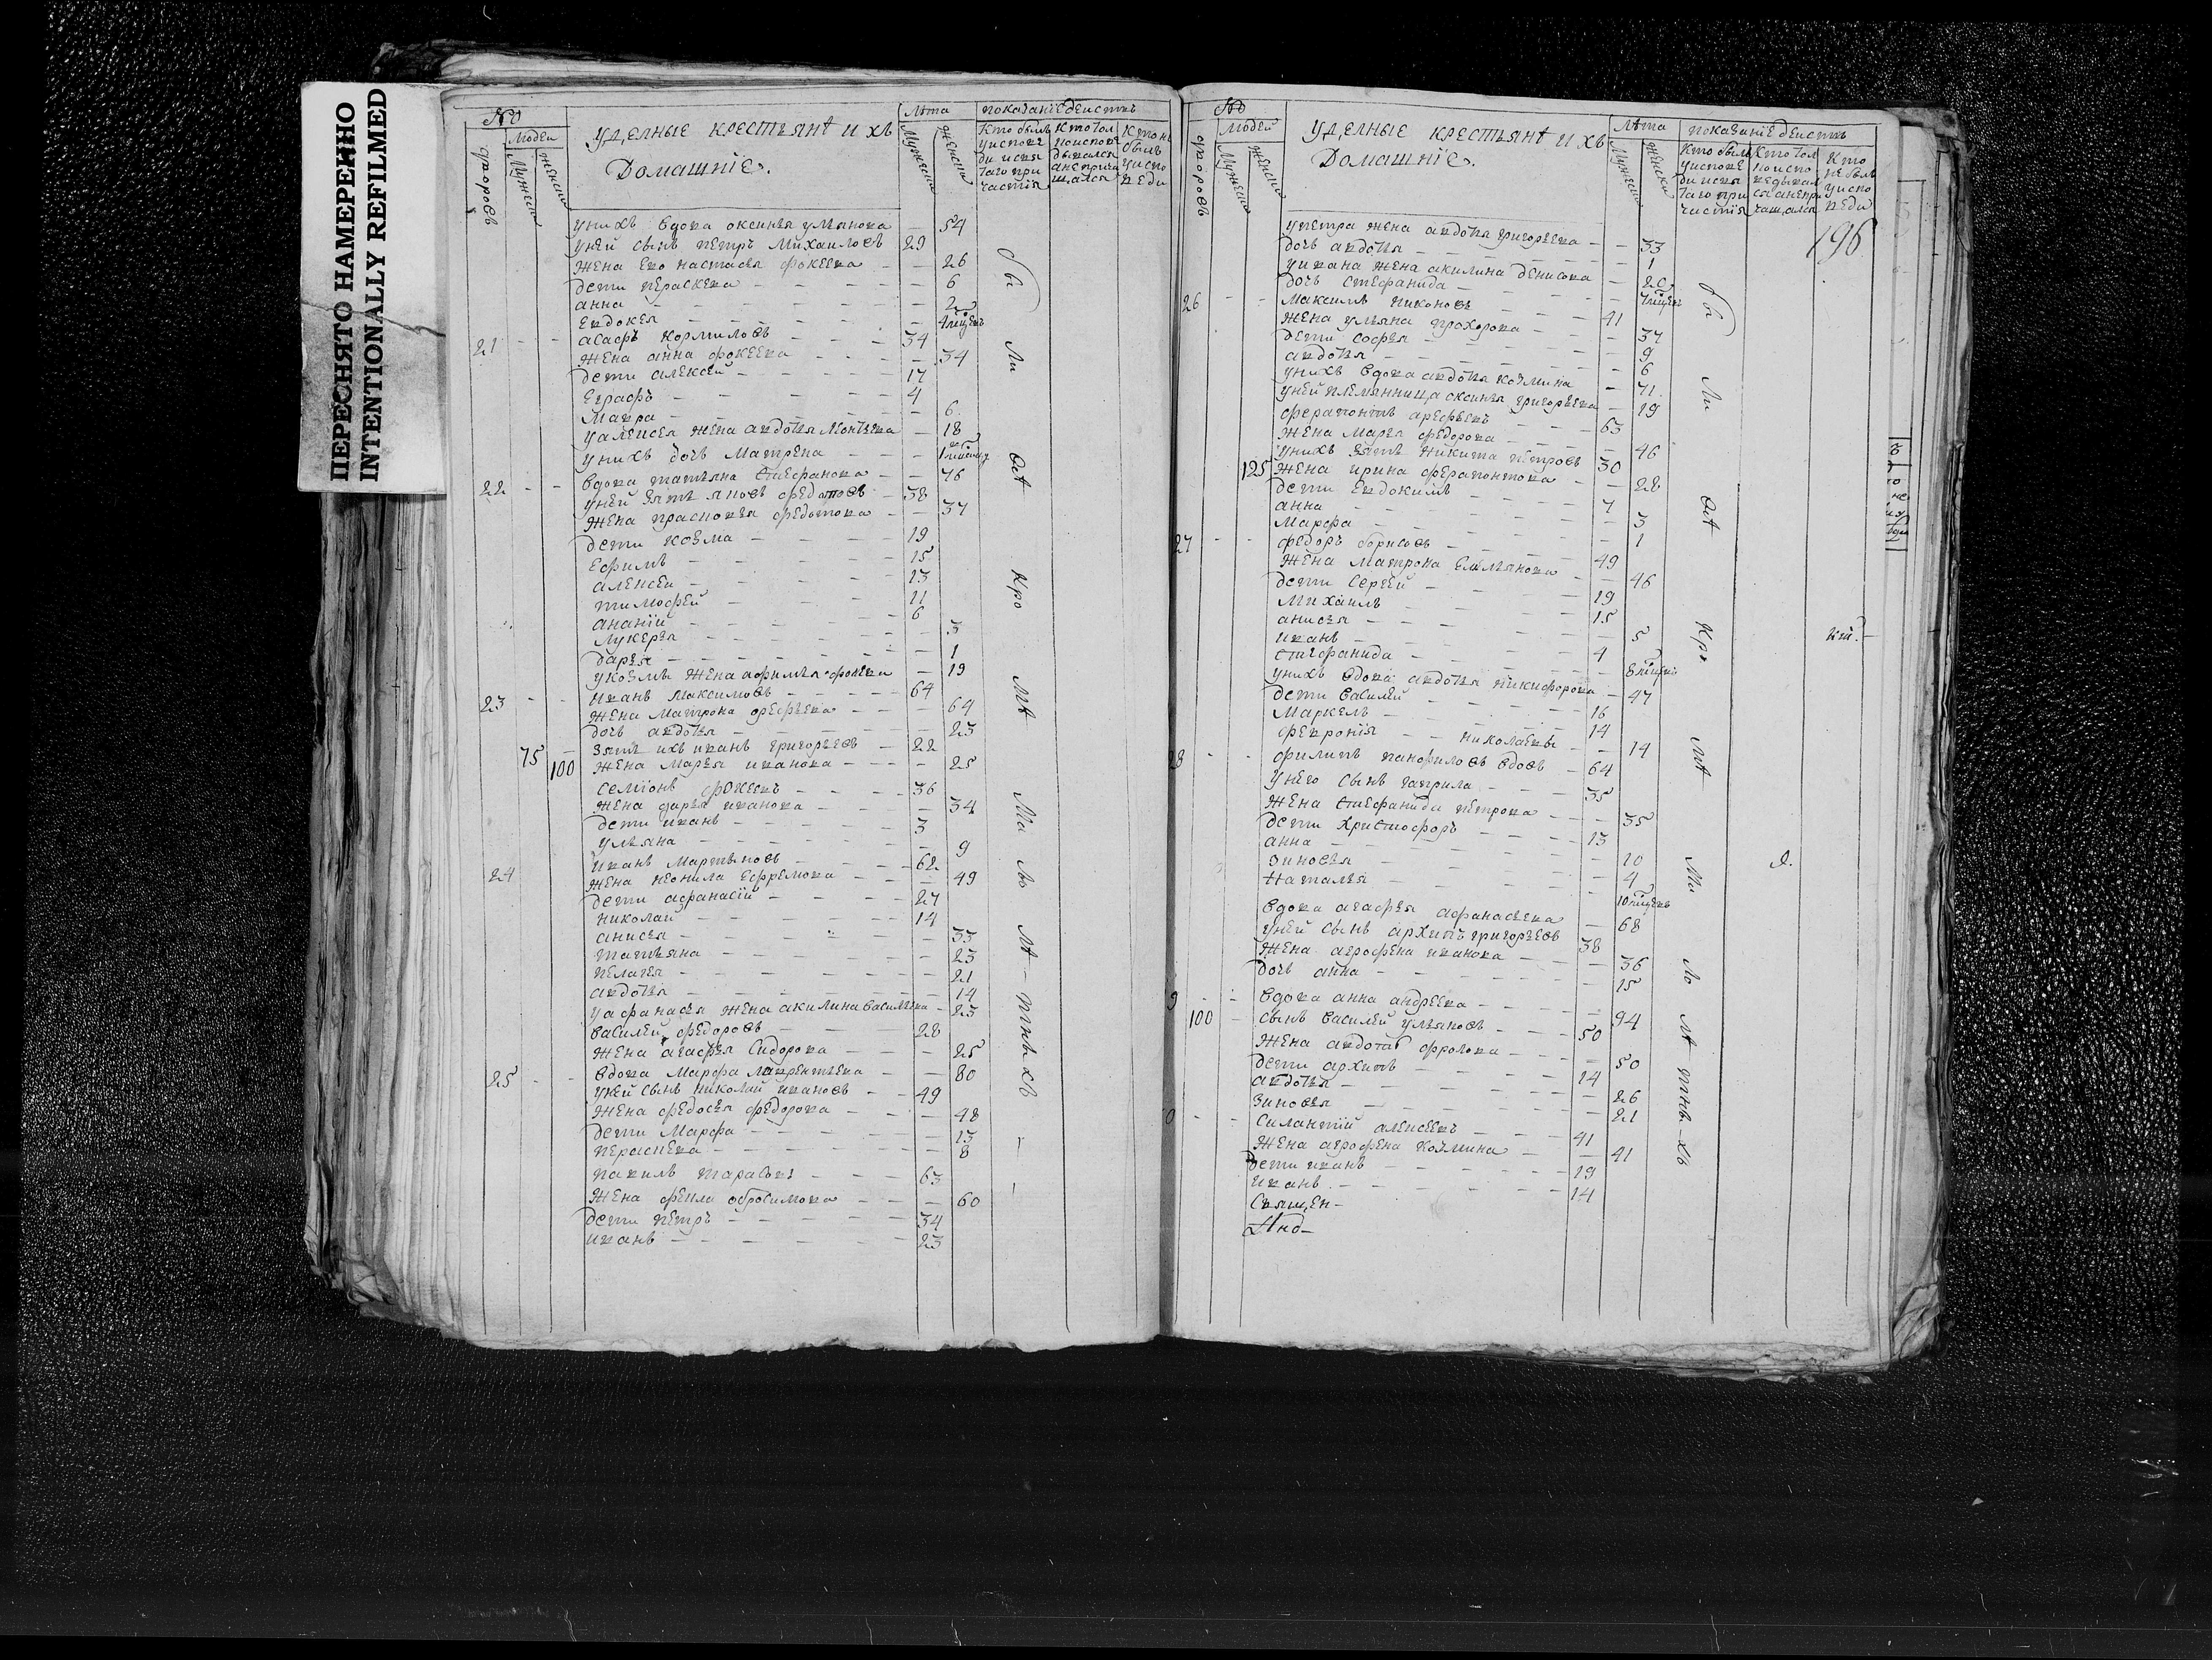 ПЕРЕСНЯТО НАМЕРЕННО
INTENTIONALLY REFILMED
№
людей
дворовъ
мужеск
женски
удѣлные крестьянѣ и хъ
Домашніе.
лѣта
мужеск
женски
показаніе деиствъ
унихъ вдова оксинья ульянова — 54
уней сынъ петръ михаиловъ 29
жена Его настасья фокеева — 26
дети пераскева — 6
анна — 2
Евдокея —
21 асафъ кормиловъ — 34
жена анна фокеева — 34
дети алексей — 17
Еграфъ — 4
Мавра — 6
уалексея жена авдотья — 18
унихъ дочь матрена —
22 вдова татьяна стефанова — 76
уней зять яковъ федотовъ — 38
жена прасковья федотова — 37
дети козма — 19
Ефимъ — 15
алексеи — 13
тимофей — 11
ананій — 6
лукерья — 3
дарья — 1
укозмы жена афимья фокеева — 19
23 иванъ максимовъ — 64
жена матрона арефьева — 64
дочь авдотья — 23
75 зять ихъ иванъ григорьевъ — 22
100 жена марья иванова — 25
семіонъ фокеевъ — 36
жена дарья иванова — 34
дети иванъ — 3
ульяна — 9
24 иванъ мартыновъ — 62
жена неонила Ефремова — 49
дети афанасій — 27
николай — 14
анисья — 33
татьяна — 23
пелагея — 21
авдотья — 14
уафанасья жена акилина васильева — 23
василей федоровъ — 28
жена агафья сидорова — 25
25 вдова марфа лаврентьева — 80
уней сынъ николай ивановъ — 49
жена федосья федорова — 48
дети марфа — 13
пераскева — 8
вавилъ тарасовъ — 63
жена фекла обросимова — 60
дети петръ — 34
иванъ — 23
№
людей
дворовъ
мужеск
женски
удѣлные крестьянѣ и хъ
Домашніе.
лѣта
мужеск
женски
показаніе деиствъ
196
упетра жена авдотья григорьева — 33
дочь авдотья — 1
уивана жена акилина денисова — 20
дочь стефанида —
26 максимъ никоновъ — 41
жена ульяна прохорова — 37
дети софья — 9
авдотья — 6
унихъ вдова авдотья козмина — 71
уней племянница оксинья григорьева — 19
ферапонтъ арефьевъ — 63
жена марья федорова — 46
унихъ зять никита петровъ 30
125 жена ирина ферапонтова — 28
дети Евдокимъ — 7
анна — 3
марфа — 1
27 федоръ борисовъ — 49
жена матрона Емельянова — 46
дети сергей — 19
михаилъ — 15
анисья — 5
иванъ — 4
стефанида —
унихъ вдова авдотья никифорова — 47
дети василей — 16
маркелъ — 14
феврония — николаевы — 14
28 филипъ панфиловъ вдовъ — 64
унего сынъ гаврила — 35
жена стефанида петрова — 35
дети христофоръ — 13
анна — 10
зиновья — 4
наталья —
вдова агафья афанасьева — 68
уней сынъ архипъ григорьевъ 38
жена агрофена иванова — 36
дочь анна — 15
9 вдова анна андреева — 94
100 сынъ василей ульяновъ — 50
жена авдотья фролова — 50
дети архипъ — 14
авдотья — 26
зиновья — 21
0 силантій алексеевъ — 41
жена агрофена козмина — 41
дети иванъ — 19
иванъ — 14
Священ-